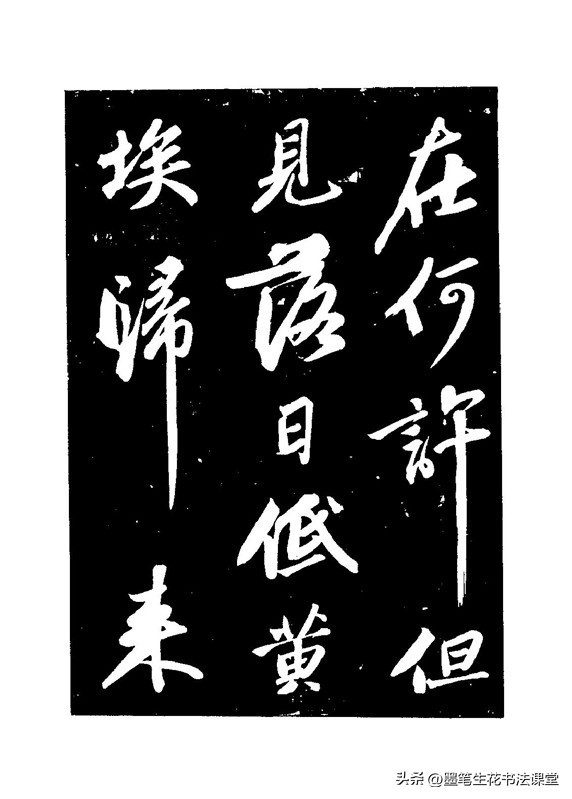 在何許但
見落日低黄
埃歸来
头条@墨笔生花书法课堂